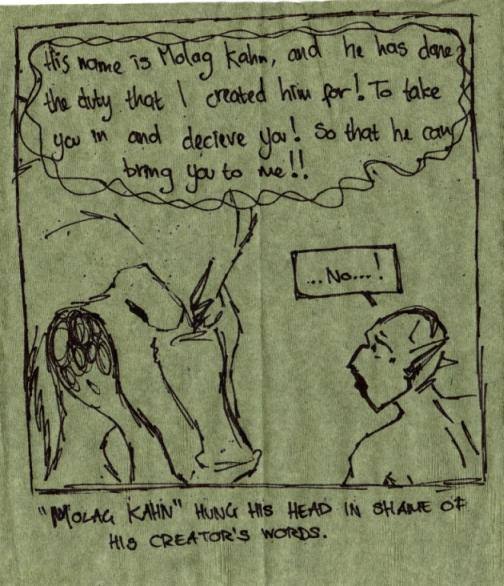 His name is Molag Kahn, and he has done
the duty that I created him for! To take
you in and decieve you! So that he can
bring you to me!!
...No...!
"MOLAG KAHN" HUNG HIS HEAD IN SHAME OF
HIS CREATOR'S WORDS.